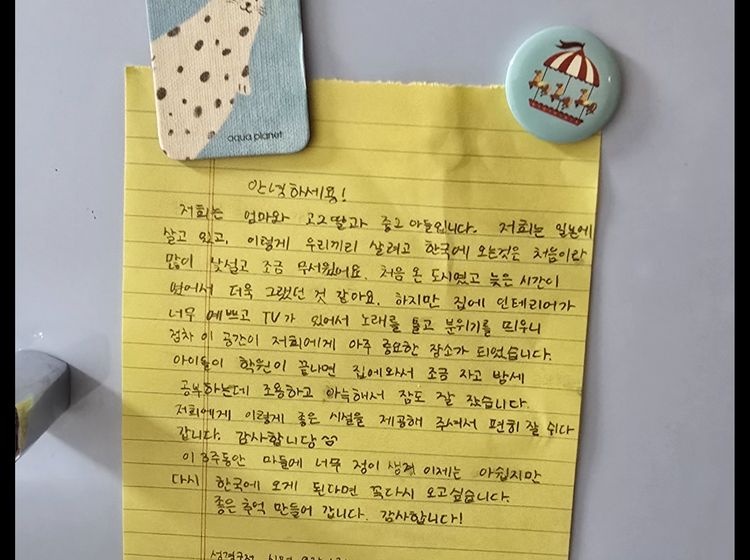 aqua planet
안녕하세요!
저희는 엄마와 고2딸과 중2 아들입니다. 저희는 일본에
살고 있고, 이렇게 우리끼리 살려고 한국에 오는것은 처음이랑
많이 낯설고 조금 무서웠어요. 처음 온 도시였고 늦은 시간이
였어서 더욱 그랬던 것 같아요. 하지만 집에 인테리어가
너무 예쁘고 TV가 있어서 노래를 틀고 분위기를 띄우니
점차 이 공간이 저희에게 아주 중요한 장소가 되었습니다.
아이들이 학원이 끝나면 집에와서 조금 자고 밤새
공부하는데 조용하고 아늑해서 잠도 잘 잤습니다.
저희에게 이렇게 좋은 시설을 제공해 주셔서 편히 잘 쉬다
갑니다. 감사합니당
이 3주동안 마들에 너무 정이 생겨 이제는 아쉽지만
다시 한국에 오게 된다면 꼭다시 오고싶습니다.
좋은 추억 만들어 갑니다. 감사합니다!